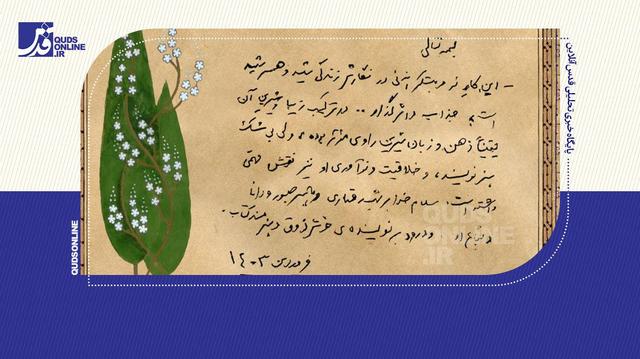 قدس
QUDS
ONLINE
.IR
پایگاه خبری تحلیلی قدس آنلاین
بسمه تعالی
- این کارِ نو و مبتکرانه‌ئی در نگارش زندگی شهید و همسر شهید
است، جذاب و اثرگذار .. در ترکیب زیبا و شیرین آن
یقیناً ذهن و زبان شیرین راوی مؤثر بوده، ولی بی‌شک
هنر نویسنده، و خلاقیت و نوآوری او نیز نقش مهمی
داشته است. سلام خدا بر شهید و همسر صبور و دانا
و شجاع او و درود بر نویسنده‌ی خوش‌ذوق و هنرمند کتاب.
فروردین ۱۴۰۳
QUDS
ONLINE
.IR
QUDSONLINE